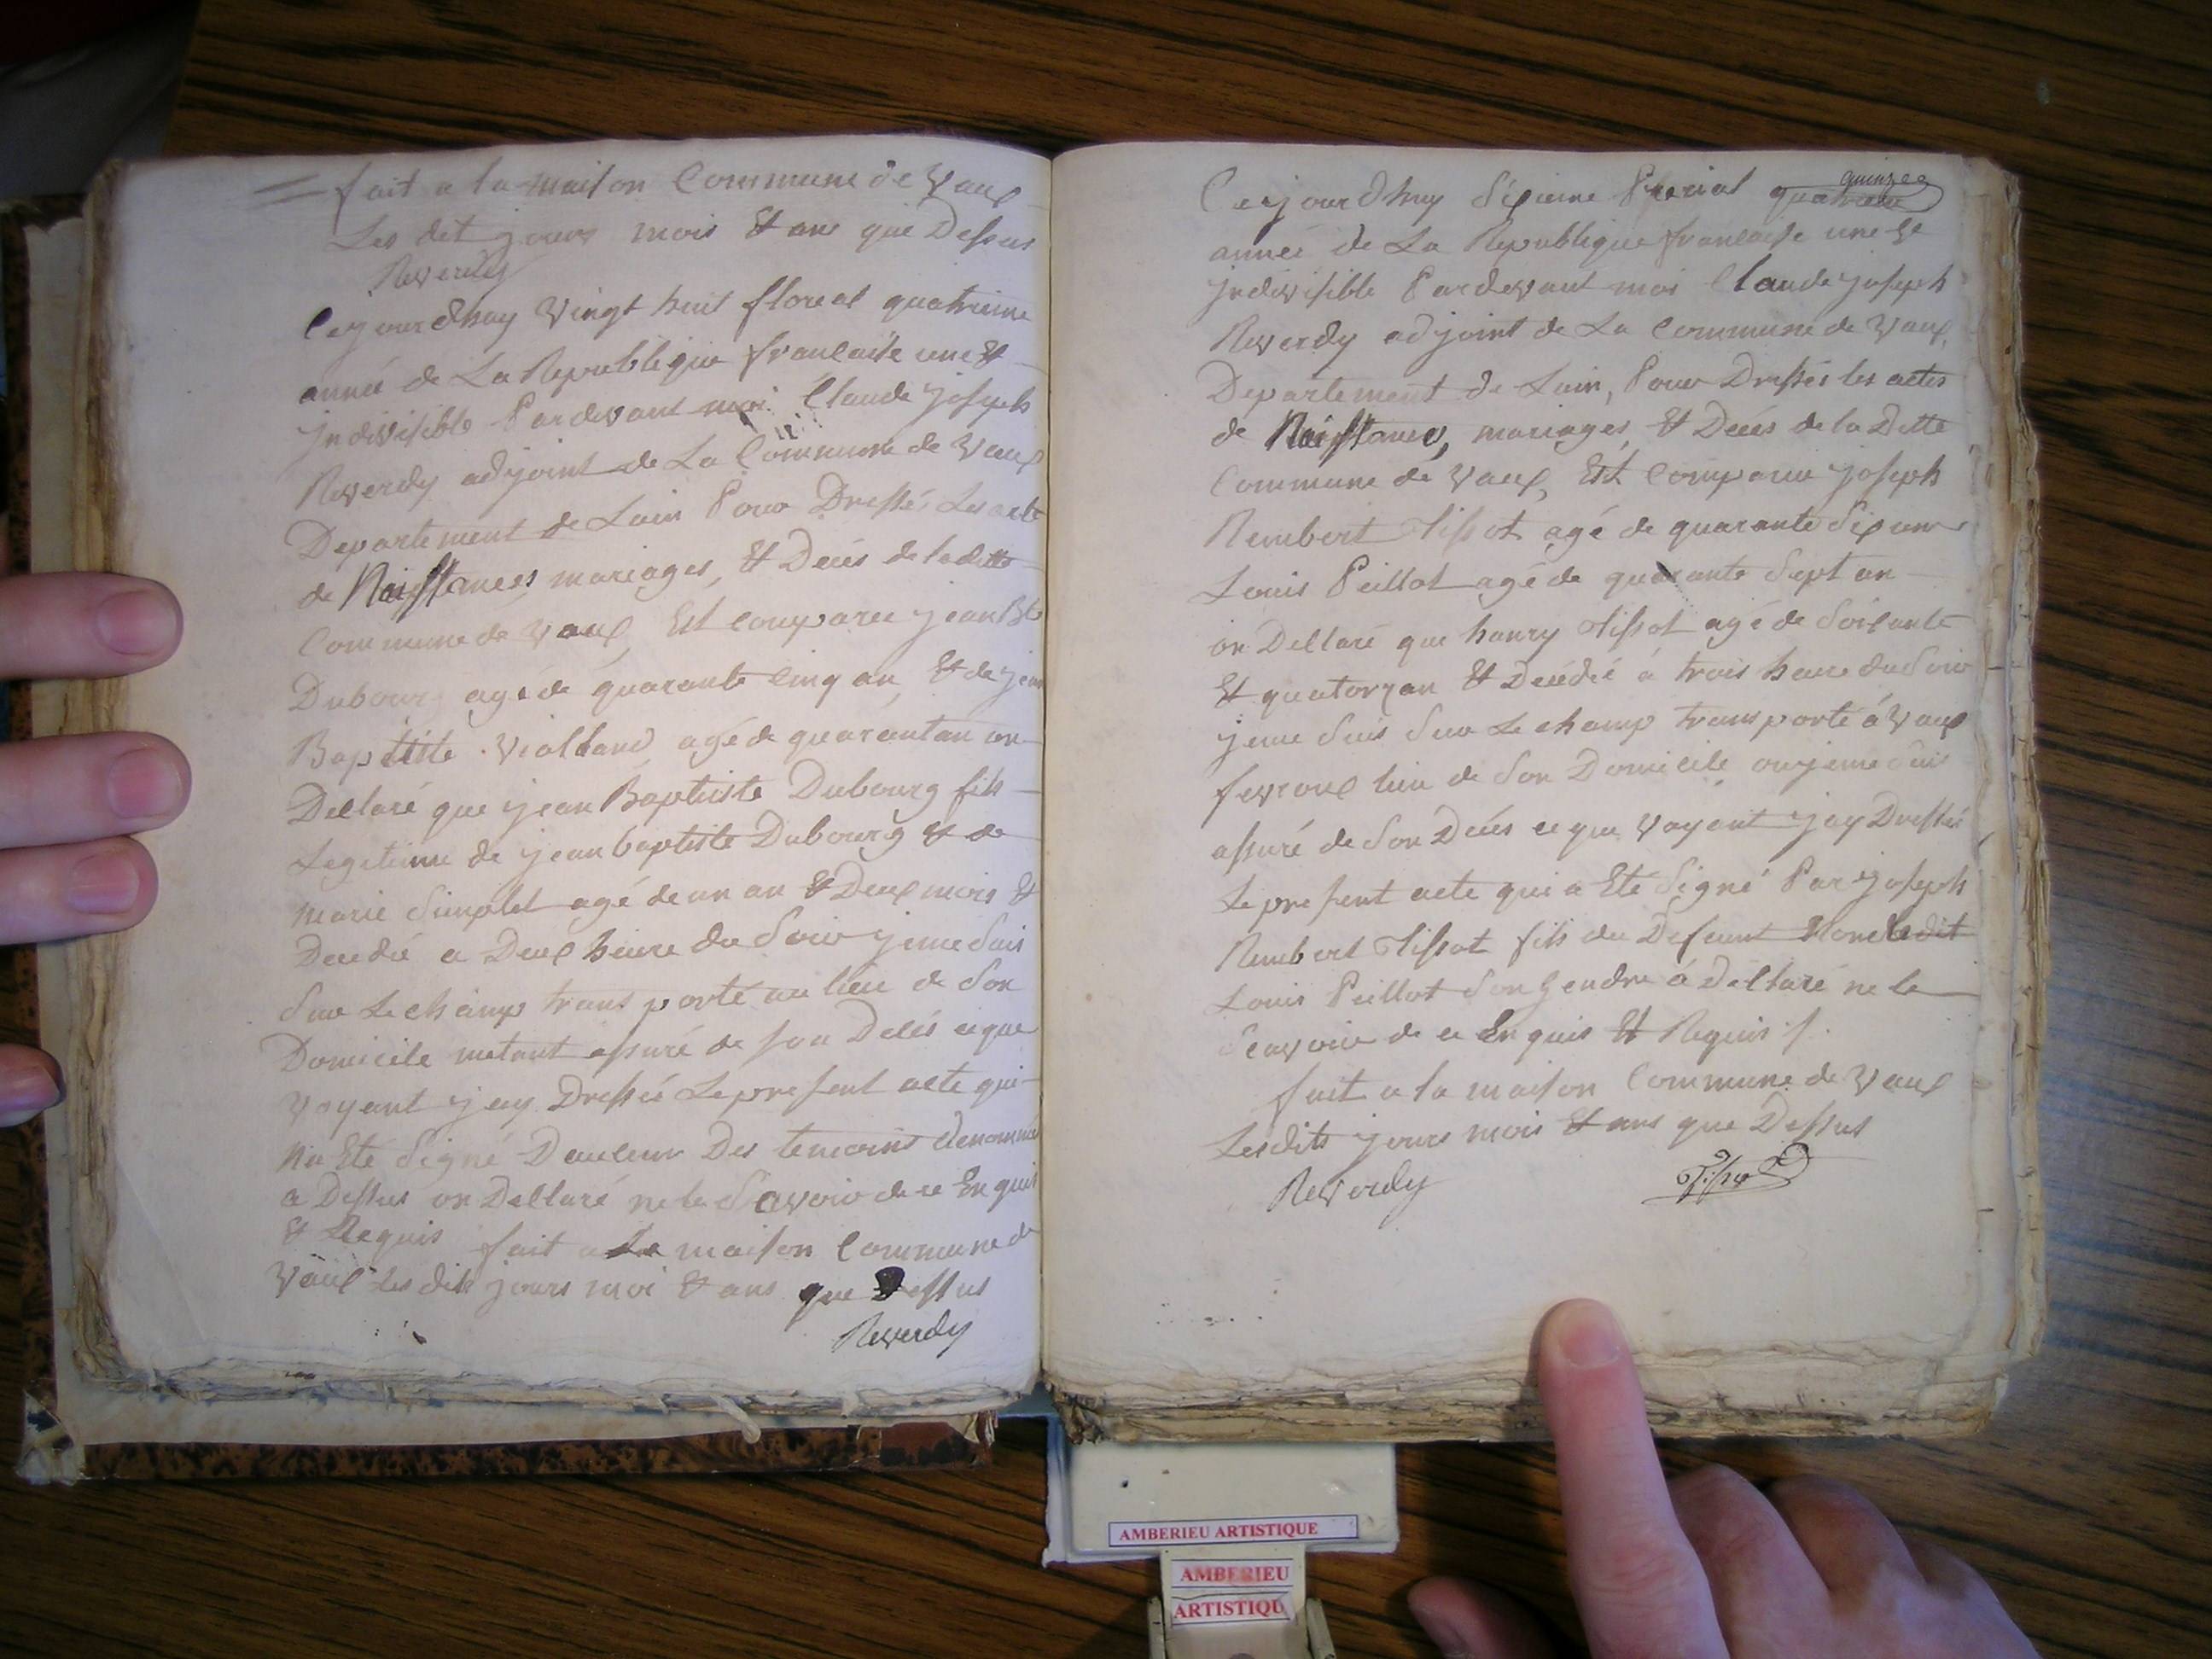 fait a la maison Commune de Vaux
Les dit jours mois & ans que Dessus
Reverdy
Cejourdhuy Vingt huit floreal quatrieme
année de La Republique francaise une &
jndivisible Pardevant moi Claude joseph
Reverdy adjoint de La Commune de Vaux
Departement de Lain Pour Dressés Les acte
de Naissances mariages, & Deces de laditte
Commune de Vaux, Est comparu jean Bte
Dubourg agé de quarante Cinq an, & de jean
Baptiste Vialland agé de quarantan on
Dellaré que jean Baptiste Dubourg fils
Legetime de jean baptiste Dubourg & de
marie Simplet agé de un an & Deux mois &
Decedé a Deux heure du Soir jeme Suis
Sur Le champ transporté au lieu de Son
Domicile metant assuré de son Decés ceque
Voyant jay Dressés Le present acte qui
na Ete Signé Daucun Des temoins denommé
a Dessus on Dellaré ne le Savoir de ce Enquis
& Requis fait a La maison Commune de
Vaux Les dits jours moi & ans que Dessus
Reverdy
Cejourdhuy Sixieme Prerial quatrieme
quinze
année de La Republique francaise une &
jndivisible Pardevant moi Claude joseph
Reverdy adjoint de La Commune de Vaux,
Departement de Lain, Pour Dressés les actes
de Naissances, mariages, & Decés de la Ditte
Commune de Vaux, Est Comparu joseph
Rembert Tissot agé de quarante Six ans
Louis Peillot agé de quarante Sept an
on Dellaré que hanry Tissot agé de Soixante
& quatorzan & Decedé á trois heure du Soir
jeme Suis Sur Le champ transporté á Vaux
fevroux lieu de Son Domicile oujeme Suis
assuré de Son Decés ce que Voyant jay Dressés
Le present acte qui a Ete Signé Par joseph
Rembert Tissot fils du Defunt ledit
Louis Peillot Son gendre á Dellaré ne le
Scavoir de ce Enquis & Requis ./.
fait a la maison Commune de Vaux
Lesdits jours mois & ans que Dessus
Reverdy Tissot
AMBERIEU ARTISTIQUE
AMBERIEU
ARTISTIQU